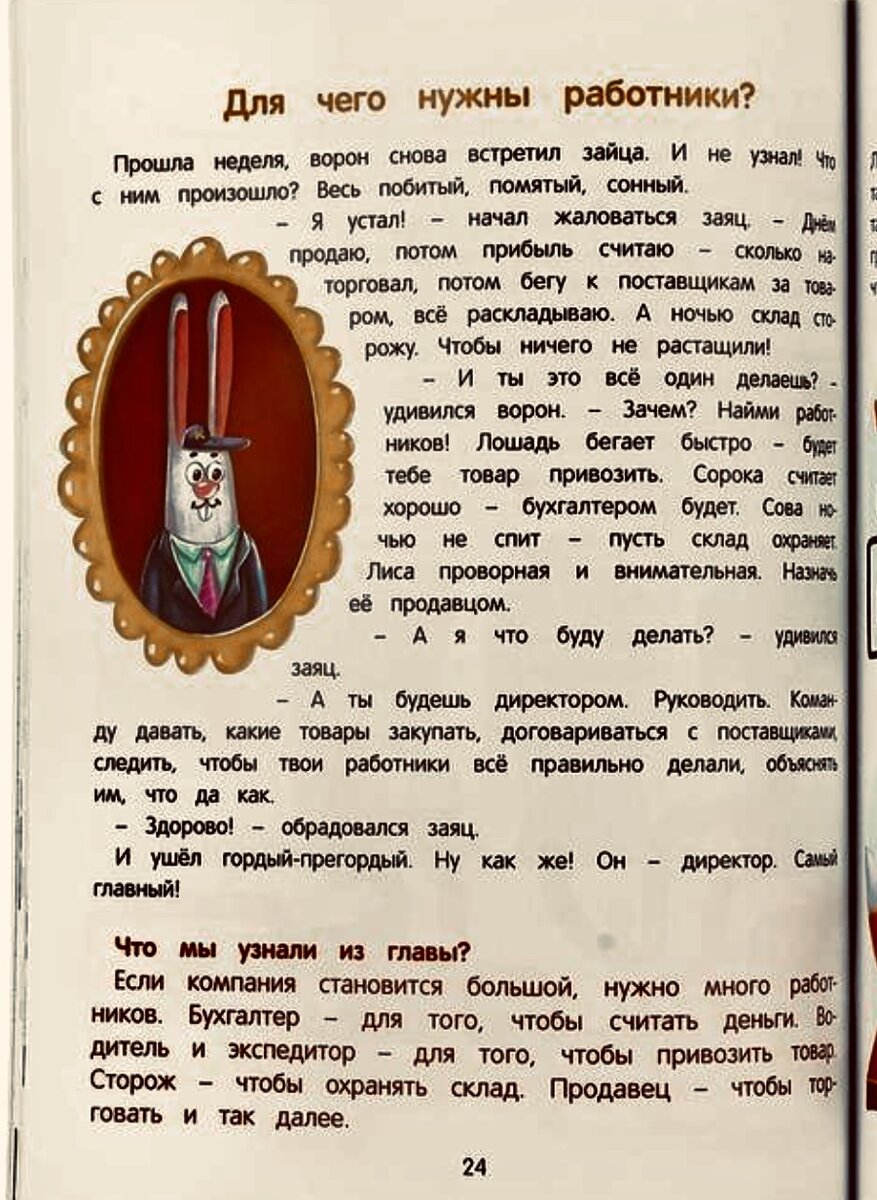 Для чего нужны работники?
Прошла неделя, ворон снова встретил зайца. И не узнал! Что
с ним произошло? Весь побитый, помятый, сонный.
– Я устал! – начал жаловаться заяц. – Днём
продаю, потом прибыль считаю – сколько на-
торговал, потом бегу к поставщикам за това-
ром, всё раскладываю. А ночью склад сто-
рожу. Чтобы ничего не растащили!
– И ты это всё один делаешь? -
удивился ворон. – Зачем? Найми работ-
ников! Лошадь бегает быстро – будет
тебе товар привозить. Сорока считает
хорошо – бухгалтером будет. Сова но-
чью не спит – пусть склад охраняет.
Лиса проворная и внимательная. Назначь
её продавцом.
– А я что буду делать? – удивился
заяц.
– А ты будешь директором. Руководить. Коман-
ду давать, какие товары закупать, договариваться с поставщиками,
следить, чтобы твои работники всё правильно делали, объяснять
им, что да как.
– Здорово! – обрадовался заяц.
И ушёл гордый-прегордый. Ну как же! Он – директор. Самый
главный!
Что мы узнали из главы?
Если компания становится большой, нужно много работ-
ников. Бухгалтер – для того, чтобы считать деньги. Во-
дитель и экспедитор – для того, чтобы привозить товар.
Сторож – чтобы охранять склад. Продавец – чтобы тор-
говать и так далее.
24